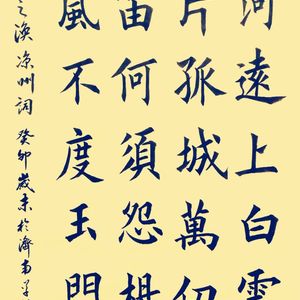 河遠上白雲
片孤城萬仞
笛何須怨楊
風不度玉門
之渙凉州詞癸卯歲末於濟南